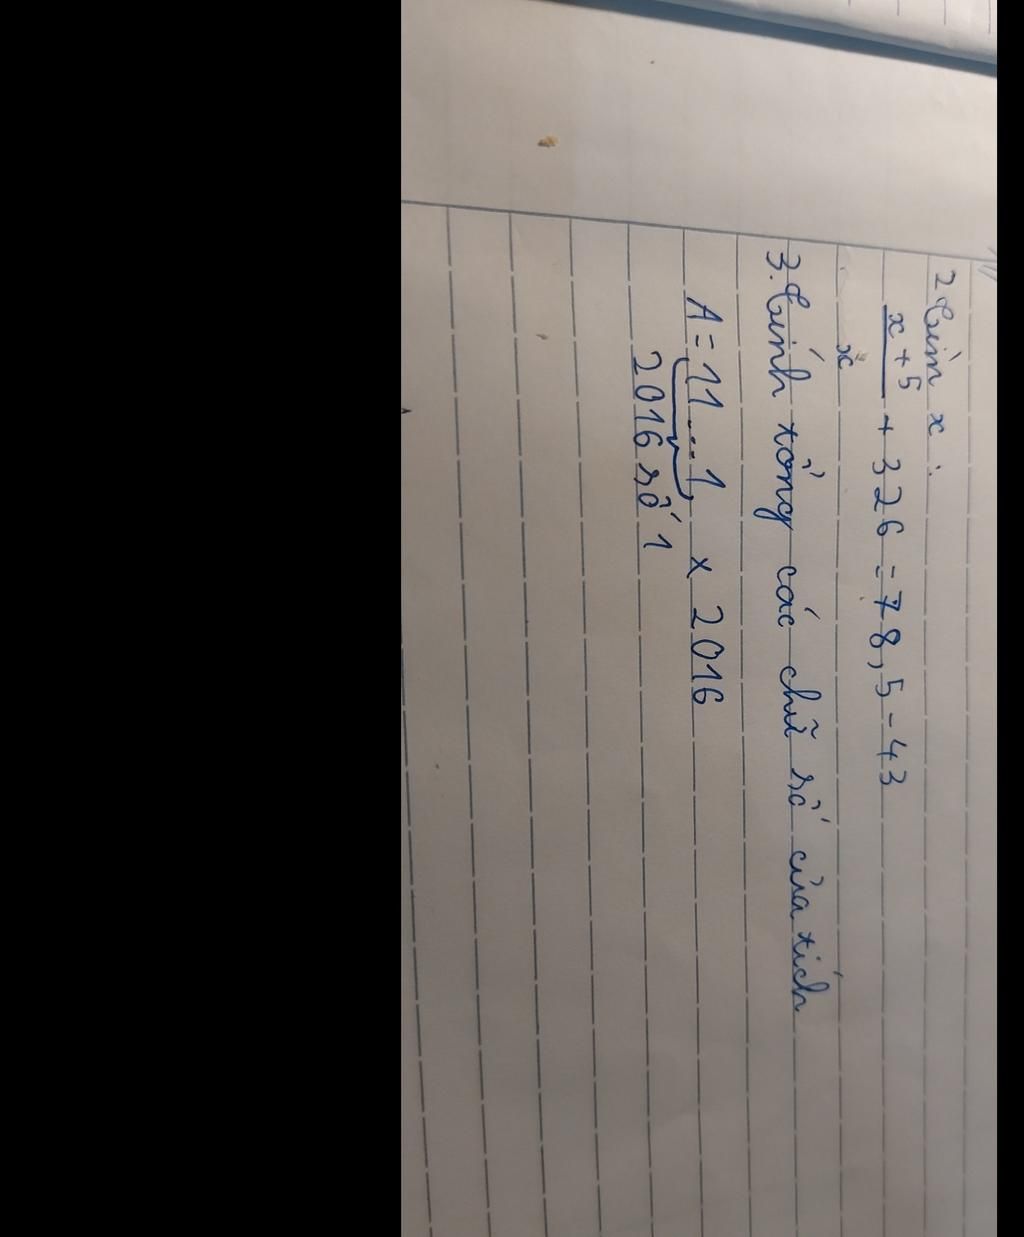 2 Tìm x :
x + 5 + 326 = 78,5 - 43
x
3. Tính tổng các chữ số của tích
A = 11...1 x 2016
2016 số 1